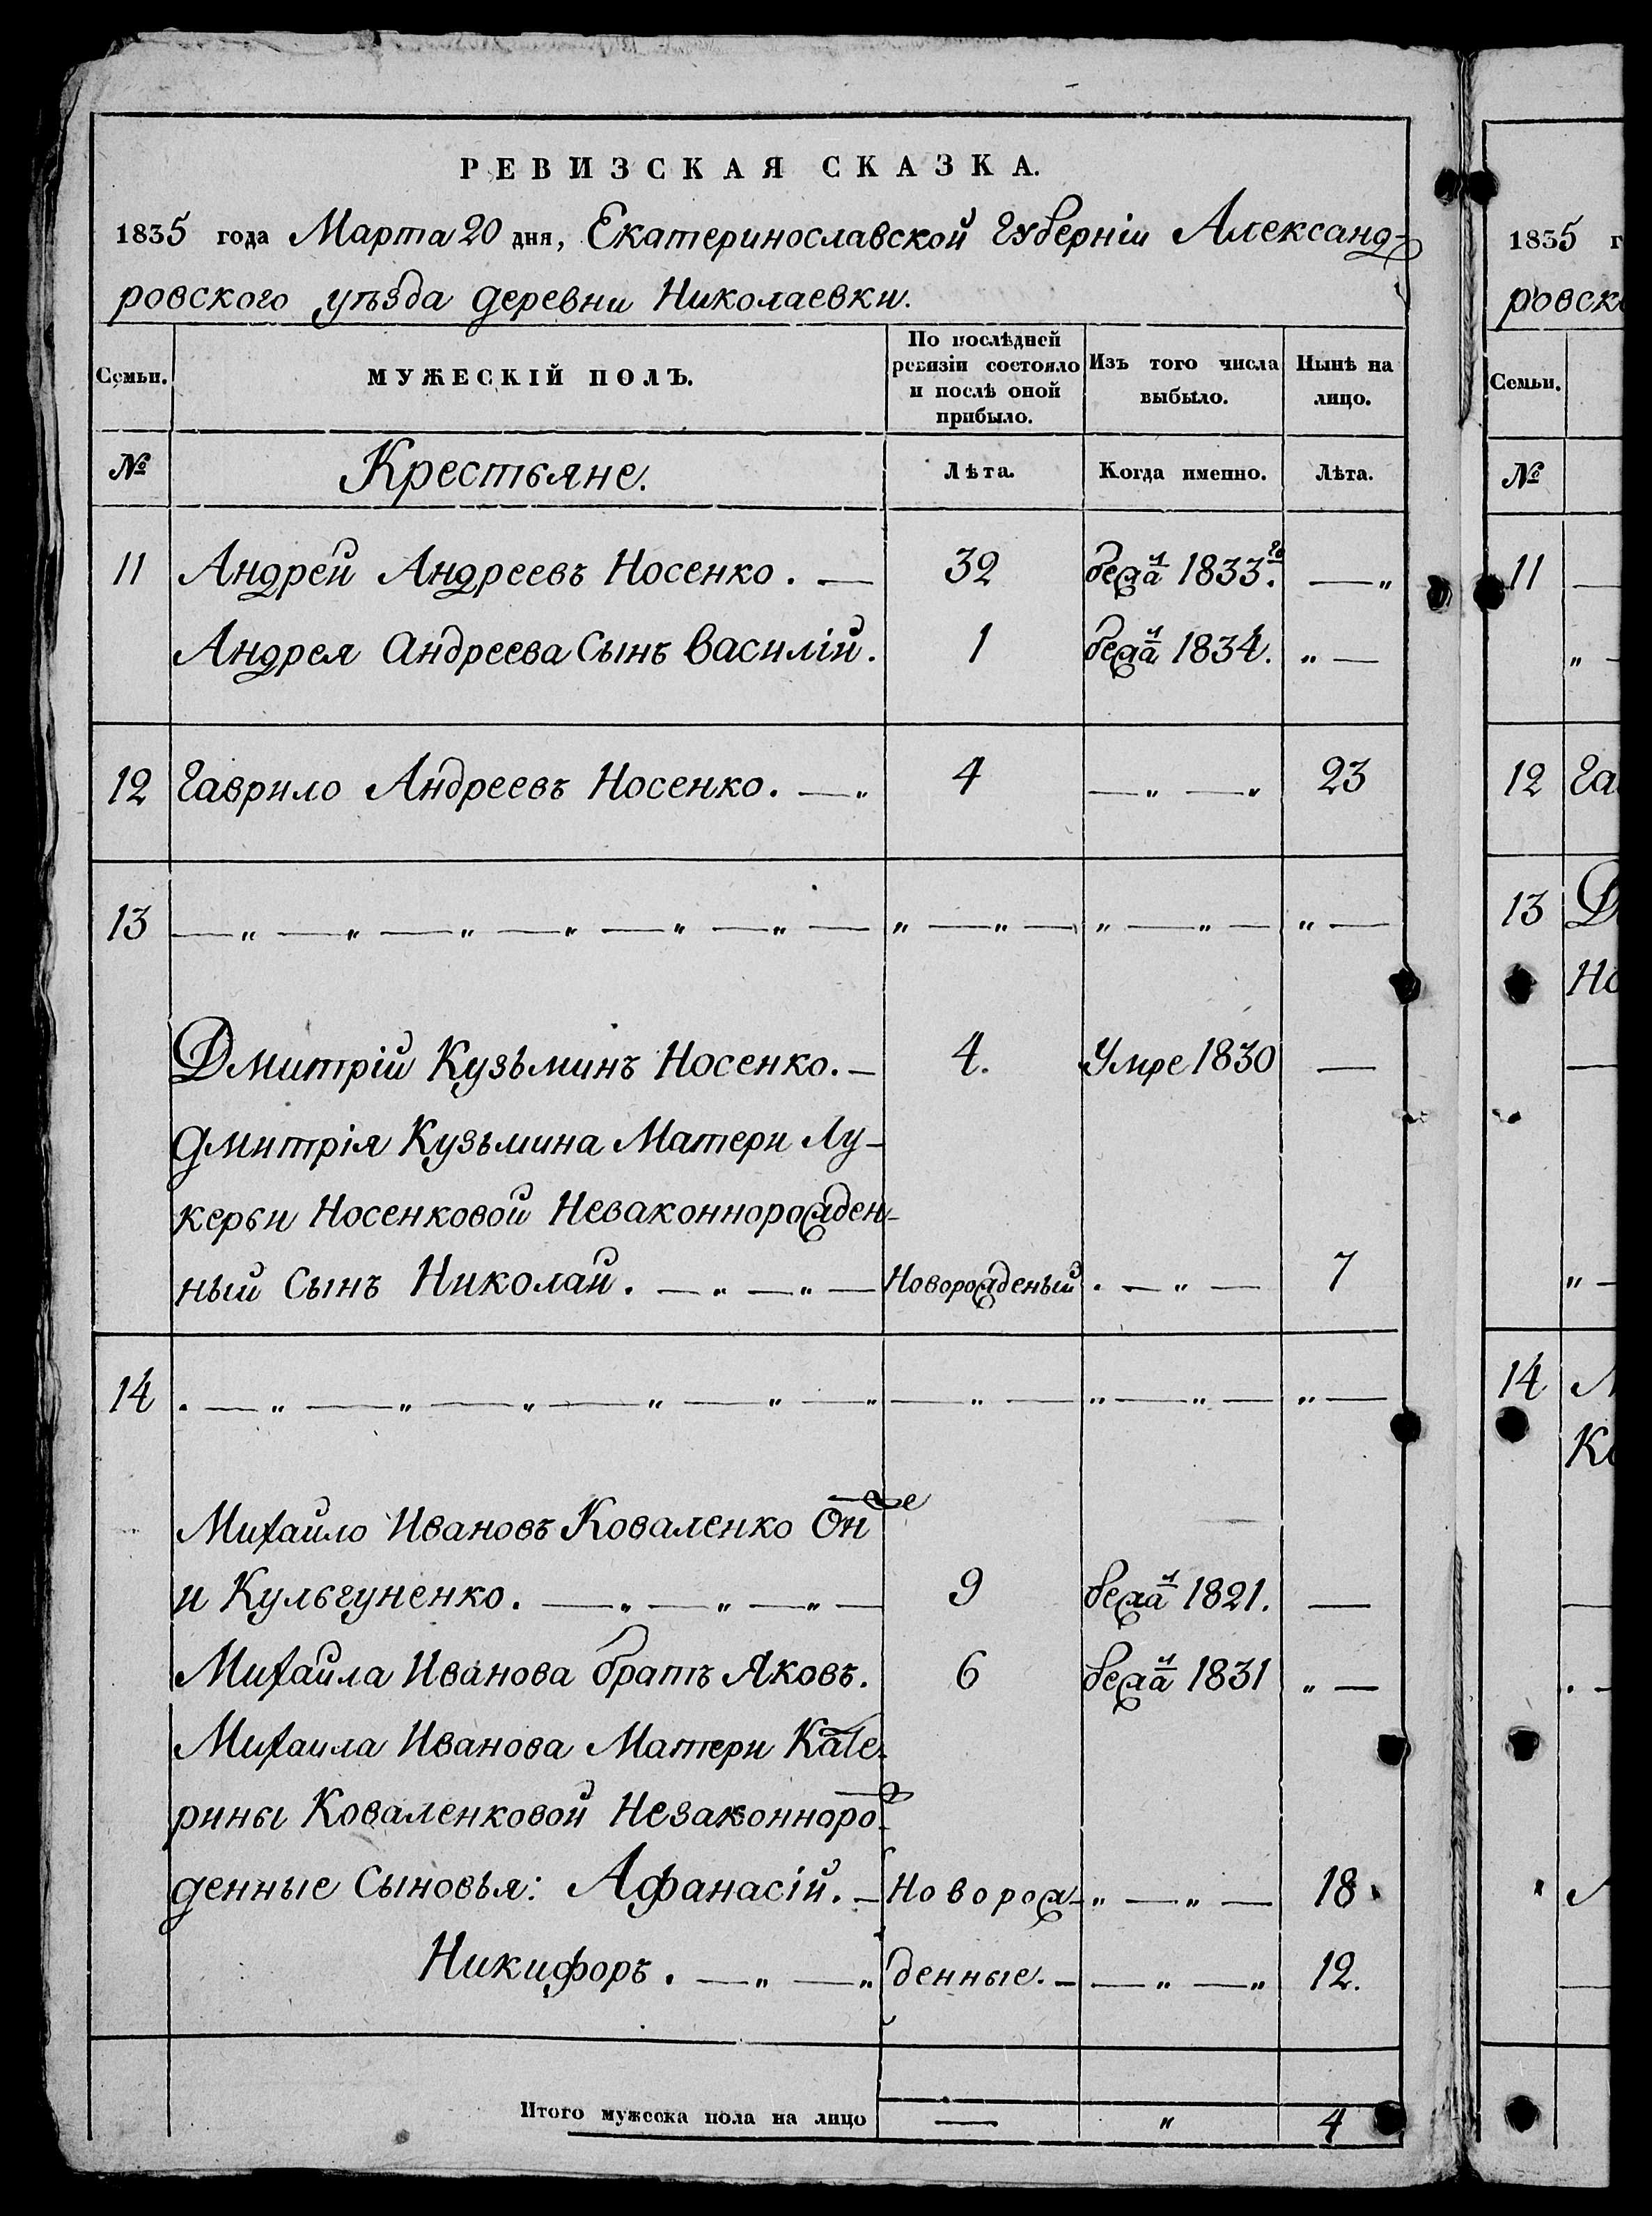 РЕВИЗСКАЯ СКАЗКА.
1835 года Марта 20 дня, Екатеринославской Губерніи Александ-
ровского уѣзда деревни Николаевки.
Семьи.
МУЖЕСКІЙ ПОЛЪ.
По послѣдней ревизіи состояло и послѣ оной прибыло.
Изъ того числа выбыло.
Нынѣ на лицо.
№ Крестьяне. Лѣта. Когда именно. Лѣта.
11 Андрей Андреевъ Носенко. — 32 1833. — „
Андрея Андреева Сынъ Василій. 1 1834. „ —
12 Гаврило Андреевъ Носенко. — „ 4 — „ — „ 23
13 — „ — „ — „ — „ — „ — „ — „ — „ — „ — „ — „ —
Дмитрій Кузьминъ Носенко. — 4. Умре 1830 —
Дмитрія Кузьмина Матери Лу-
керьи Носенковой Незаконнорожден-
ный Сынъ Николай. — „ — „ — Новорожденый . — „ — 7
14 . — „ — „ — „ — „ — „ — „ — „ — „ — „ — „ —
Михайло Ивановъ Коваленко Онже
и Кульгуненко. — „ — „ — „ — 9 бежа 1821. —
Михайла Иванова братъ Яковъ. 6 бежа 1831 „ —
Михаила Иванова Матери Кате-
рины Коваленковой Незаконнорож-
денные Сыновья: Афанасій. — Новорож- „ — „ — 18
Никифоръ. — „ — „ денные. — — „ — „ 12.
Итого мужеска пола на лицо — „ 4
1835 г
ровско
Семьи.
№
11 —
„ —
12 Га
13 Д
Но
—
„ —
14 М
Ко